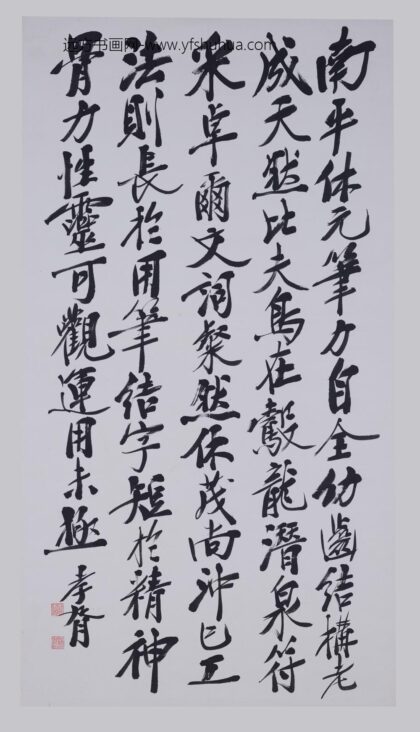 书画网-www.yfshuhua.com
南平休元筆力自全幼齒結構老
成天然比夫鳥在鷇龍潛泉符
采卓爾文詞粲然休茂尚沖已工
法則長於用筆結字短於精神
骨力性靈可觀運用未極
孝胥